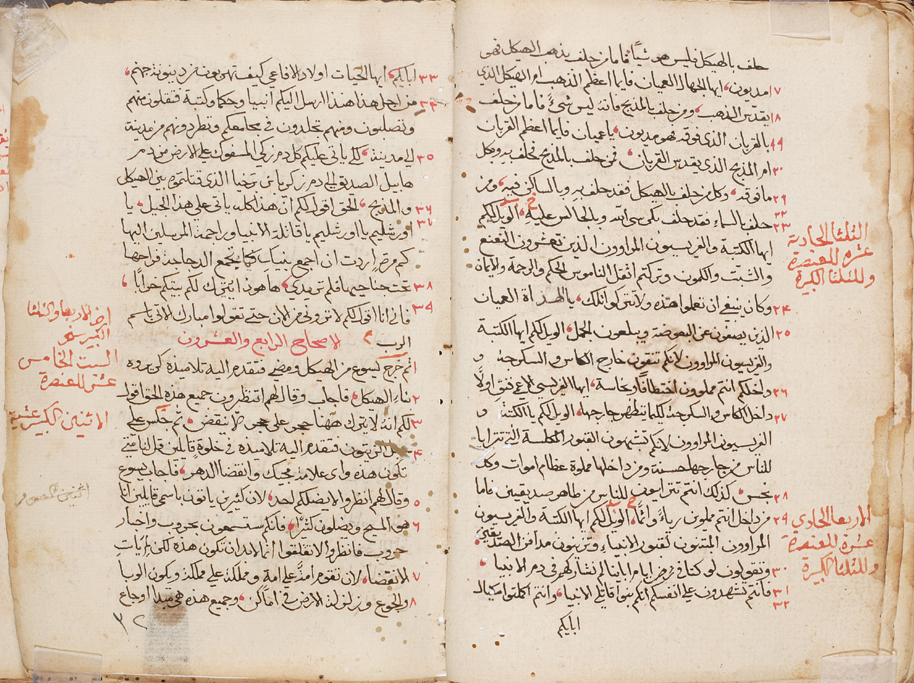 حلف بالهيكل فليس هو شيئًا فاما من حلف بذهب الهيكل فهو
١٧ مديون ايها الجهال العميان فايما اعظم الذهب ام الهيكل الذي
١٨ يقدس الذهب ومن حلف بالمذبح فانه ليس شيئ فاما من حلف
١٩ بالقربان الذي فوقه فهو مديون يا عميان فايما اعظم القربان
٢٠ ام المذبح الذي يقدس القربان فمن حلف بالمذبح يحلف به وبكل
٢١ ما فوقه وكل من حلف بالهيكل فقد حلف به وبالساكن فيه ومن
٢٢ حلف بالسماء فقد حلف بكرسي الله وبالجالس عليه الويل لكم
٢٣ ايها الكتبة والفريسيون المراوون الذين تعشرون النعنع
والشبت والكمون وتركتم اثقل الناموس الحكم والرحمة والامانة
٢٤ وكان ينبغي ان تعملوا هذه ولا تتركوا تلك يا هداة العميان
٢٥ الذين يصفون عن البعوضة ويبلعون الجمل الويل لكم ايها الكتبة
والفريسيون المراوون لانكم تنقون خارج الكاس والسكرجة و
٢٦ داخلكم انتم مملوون اختطافًا ونجاسة ايها الفريسي الاعمى نق اولًا
٢٧ داخل الكاس والسكرجة كيما يتطهر خارجها الويل لكم يا الكتبة و
الفريسيون المراوون لانكم تشبهون القبور المكلسة التي تترايا
للناس من خارجها حسنة ومن داخلها مملوة عظام اموات وكل
٢٨ نجس كذلك انتم تترايون للناس من ظاهر صديقين فاما
٢٩ من داخل انتم مملوون رياءً واثمًا الويل لكم ايها الكتبة والفريسيون
المراوون المبتنون لقبور الانبياء وتزينون مدافن الصديقين
٣٠ وتقولون لو كنا في زمن ايام ابائنا لم نشاركهم في دم الانبياء
٣١ فانتم تشهدون على انفسكم انكم بنوا قاتلي الانبياء وانتم اكملتوا مكيال
٣٢
ابايكم
الثلثا الحادية
عشرة للعنصرة
وللثلثا الكبيرة
الاربعا الحادي
عشرة للعنصرة
وللثلثا الكبيرة
٣٣ ابايكم ايها الحيات اولاد الافاعي كيف تهربون من دينونة جهنم
٣٤ من اجل هذا هنذا ارسل اليكم انبيا وحكما وكتبة فتقتلون منهم
وتصلبون ومنهم تجلدون في مجامعكم وتطردونهم من مدينة
٣٥ الى مدينة لكي ياتي عليكم كل دم زكي المسفوك على الارض من دم
هابيل الصديق الى دم زكريا بن برخيا الذي قتلتموه بين الهيكل
٣٦ والمذبح الحق اقول لكم ان هذا كله ياتي على هذا الجيل يا
٣٧ اورشليم يا اورشليم يا قاتلة الانبيا وراجمة المرسلين اليها
كم مرة اردت ان اجمع بنيك كما يجمع الدجاجة فراخها
٣٨ تحت جناحيها فلم تريدي ها هوذا يترك لكم بيتكم خرابًا
٣٩ فاني اقول لكم لا ترونني من الان حتى تقولوا مبارك الاتي باسم
الرب الاصحاح الرابع والعشرون
١ ثم خرج يسوع من الهيكل ومضى فتقدم اليه تلاميذه كي يروه
٢ بناء الهيكل فاجاب وقال لهم انتظرون جميع هذه الحق اقول
٣ لكم انه لا يترك ههنا حجر على حجر لا ينقض ثم جلس على
٤ جبل الزيتون فتقدم اليه تلاميذه في خلوة قائلين قل لنا متى
تكون هذه واي علامة مجيك وانقضا الدهر فاجاب يسوع
٥ وقال لهم انظروا لا يضلكم احد لان كثيرين ياتون باسمي قائلين انا
٦ هو المسيح ويضلون كثيرًا فانكم ستسمعون بحروب واخبار
حروب فانظروا لا تقلقوا انه لا بد ان تكون هذه لكن لم يات
٧ الانقضا لان تقوم امة على امة ومملكة على مملكة ويكون الوبا
٨ والجوع وزلزلة الارض في اماكن وجميع هذه هي مبدا اوجاع
٣٢
السبت الخامس
عشر للعنصرة
الاثنين الكبير عشية